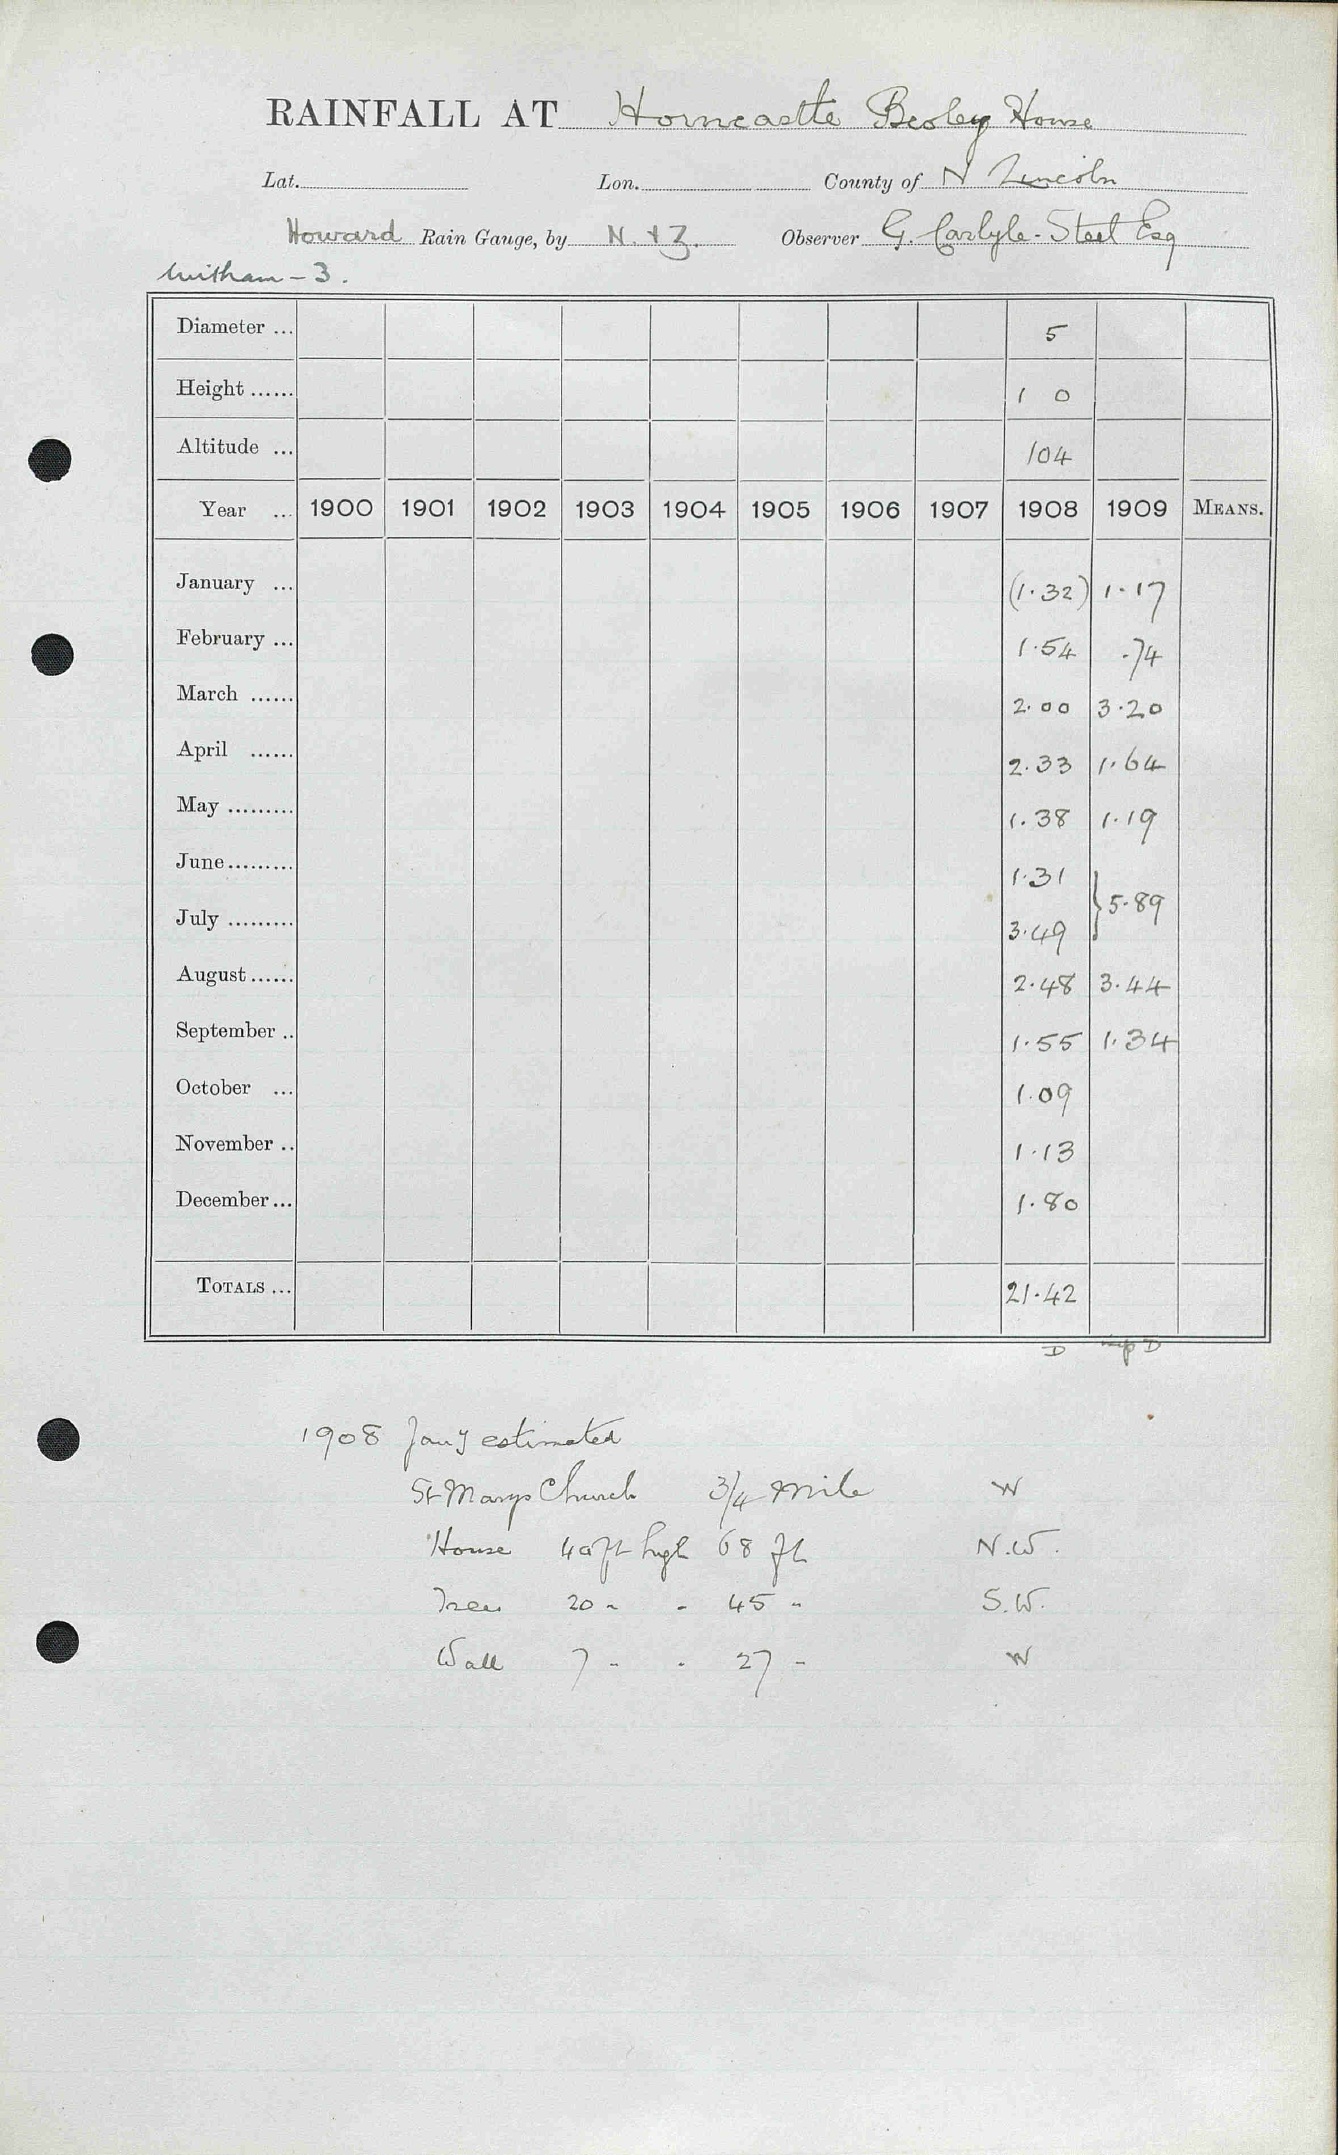 RAINFALL AT Horncastle Beoley House
Lat. Lon. County of N Lincoln
Howard Rain Gauge, by N. & Z. Observer G. Carlyle-Steel Esq
Witham - 3.
Diameter ... 5
Height ...... 1 0
Altitude ... 104
Year ... 1900 1901 1902 1903 1904 1905 1906 1907 1908 1909 MEANS.
January ... (1.32) 1.17
February ... 1.54 .74
March ...... 2.00 3.20
April ...... 2.33 1.64
May ......... 1.38 1.19
June ......... 1.31
} 5.89
July ......... 3.49
August ...... 2.48 3.44
September .. 1.55 1.34
October ... 1.09
November .. 1.13
December ... 1.80
TOTALS ... 21.42
D D
1908 Jany estimated
St Marys Church 3/4 Mile W
House 40 ft high 68 ft N.W.
Trees 20 " " 45 " S.W.
Wall 7 " " 27 " W